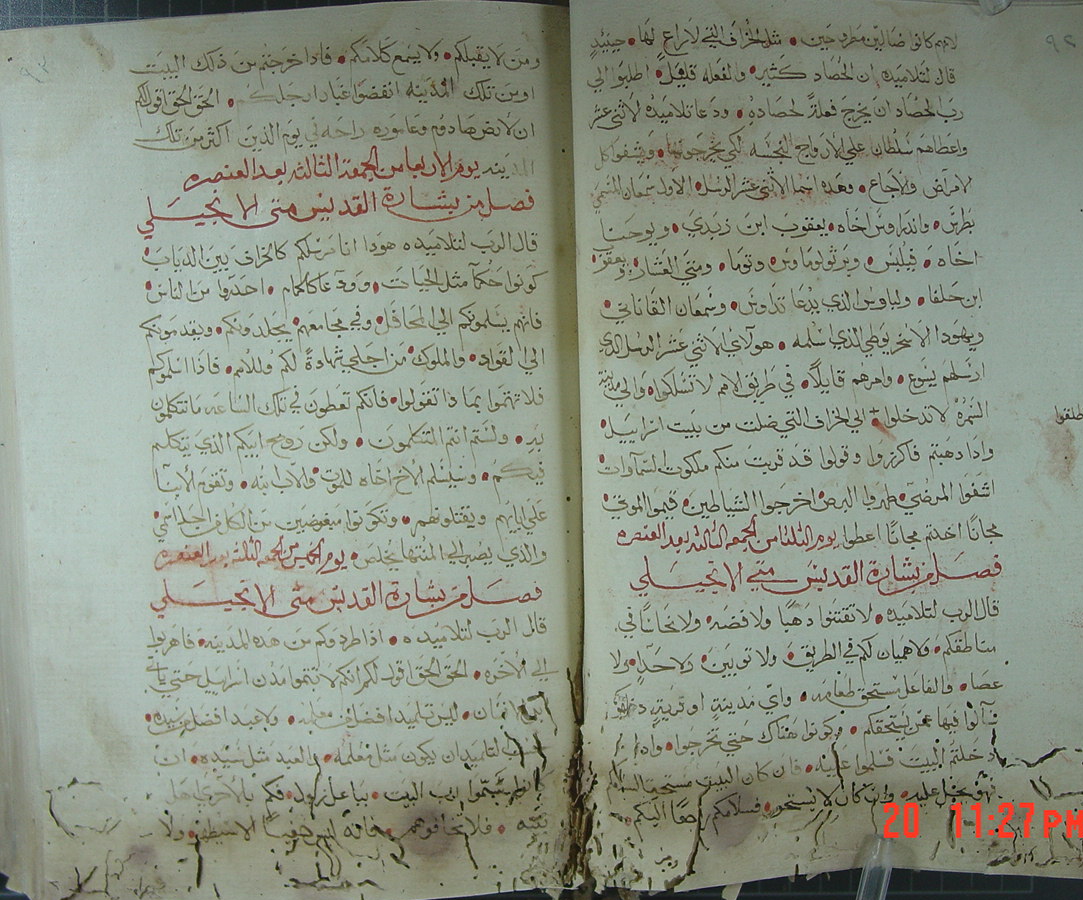 ٩٢
لانهم كانوا ضالين مطروحين • مثل الخراف التي لا راعي لها • حينيدٍ
قال لتلاميده ان الحصاد كثير • والفعله قليل • اطلبوا الي
رب الحصاد ان يخرج فعلةً لحصاده • ودعا تلاميده الاثني عشر
واعطاهم سلطان علي الارواح النجسه لكي يخرجونها • ويشفوا كل
الامراض والاوجاع • وهده اسما الاثني عشر الرسل • الاول سمعان المسمي
بطرس • واندراوس اخاه • يعقوب ابن زبدي • ويوحنا
اخاه • فيلبس • وبرثولوماوس • وتوما • ومتي العشار • ويعقوب
ابن حلفا • ولباوس الذي يدعا تداوس • وسمعان القاناني •
ويهودا الاسخريوطي الذي اسلمه • هولاي الاثني عشر الرسل الذي
ارسلهم يسوع • وامرهم قايلاً • في طريق الامم لا تسلكوا • والي مدينة
السمرة لا تدخلوا • الي الخراف التي ضلت من بيت اسراييل •
انطلقوا
وادا دهبتم فاكرزوا وقولوا قد قربت منكم ملكوت السماوات •
اشفوا المرضي • طهروا البرص • اخرجوا الشياطين • قيموا الموتي •
مجانًا اخذتم مجانًا اعطوا • يوم الثلثا من الجمعه الثالثه بعد العنصره
فصل من بشارة القديس متي الانجيلي
قال الرب لتلاميده • لا تقتنوا دهبًا ولا فضه • ولا نحاسًا في
مناطقكم • ولا هميان لكم في الطريق • ولا توبين • ولا حدا • ولا
عصا • والفاعل مستحق طعامه • واي مدينةٍ او قرية دخلتموها
سالوا فيها من يستحقكم • وكونوا هناك حتي تخرجوا • وادا
دخلتم البيت فسلموا عليه • فان كان البيت مستحقا لسلامكم
فهو يحل عليه • وان كان لا يستحق • فسلامكم راجعًا اليكم •
ومن
٩٣
ومن لا يقبلكم • ولا يسمع كلامكم • فاذا خرجتم من ذلك البيت
او من تلك المدينه انفضوا غبار ارجلكم • الحق الحق اقول لكم
ان لارض صادوم وعاموره راحه في يوم الدين اكثر من تلك
المدينه • يوم الاربعا من الجمعة الثالثه بعد العنصره
فصل من بشارة القديس متى الانجيلي
قال الرب لتلاميده هودا انا مرسلكم كالخراف بين الدياب •
كونوا حكمآ مثل الحيات • وودعآ كالحمام • احدروا من الناس •
فانهم يسلمونكم الي المحافل • وفي مجامعهم يجلدونكم • ويقدمونكم
الي القواد • والملوك • من اجلي شهادةً لكم وللامم • فاذا اسلموكم
فلا تهتموا بما ذا تقولوا • فانكم تعطون في تلك الساعه ما تتكلمون
به • ولستم انتم المتكلمون • ولكن روح ابيكم الذي يتكلم
فيكم • وسيسلم الاخ اخاه للموت • والاب ابنه • وتقوم الابنا
علي ابايهم ويقتلونهم • وتكونوا مبغوضين من الكل من اجل اسمي
والذي يصبر الي المنتها يخلص • يوم الخميس من الجمعه الثلثه بعد العنصره
فصل من بشارة القديس متى الانجيلي
قال الرب لتلاميده • اذا طردوكم من هده المدينه • فاهربوا
الي الاخره • الحق الحق اقول لكم انكم لا تتموا مدن اسرايل حتي ياتي
ابن الانسان • ليس تلميد افضل من معلمه • ولا عبد افضل من سيده •
للتلميد ان يكون مثل معلمه • والعبد مثل سيده • ان
سموا لرب البيت • بباعل زبول • فكم بالاحري اهل
بيته • فلا تخافوهم • فانه ليس خفيًا الا سيظهر • ولا
20 11:27PM